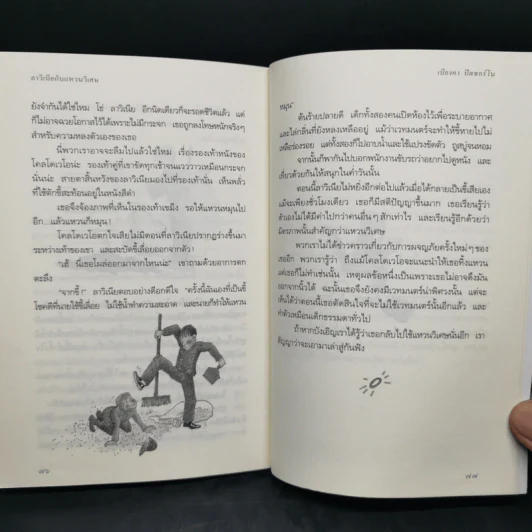 ลาวิเนียกับแหวนวิเศษ
ยังจำกันได้ใช่ไหม โธ่ ลาวิเนีย อีกนิดเดียวก็จะรอดชีวิตแล้ว แต่
ก็ไม่อาจฉวยโอกาสไว้ได้เพราะไม่มีกระจก เธอถูกลงโทษหนักจริงๆ
สำหรับความหลงตัวเองของเธอ
นี่พวกเราอาจจะลืมไปแล้วใช่ไหม เรื่องรองเท้าหนังของ
โคลโดเวโอน่ะ รองเท้าคู่ที่เขาขัดทุกเช้าจนแวววาวเหมือนกระจก
นั่นน่ะ สายตาสิ้นหวังของลาวิเนียมองไปที่รองเท้านั่น เห็นพลั่ว
ที่ใช้ตักขี้สะท้อนอยู่ในหนังสีดำ
เธอจึงจ้องภาพที่เห็นในรองเท้าเขม็ง รอให้แหวนหมุนไป
อีก...แล้วแหวนก็หมุน!
โคลโดเวโอตกใจเสียไม่มีตอนที่ลาวิเนียปรากฏร่างขึ้นมา
ระหว่างเท้าของเขา และสะบัดขี้เลื่อยออกจากตัว!
"เฮ้ นี่เธอโผล่ออกมาจากไหนน่ะ" เขาถามด้วยอาการตก
ตะลึง
"จากขี้!" ลาวิเนียตอบอย่างดีอกดีใจ "ครั้งนี้ฉันเองที่เป็นขี้
โชคดีที่นายใช้ขี้เลื่อย ไม่ใช้น้ำทำความสะอาด และนายก็ทำให้แหวน
๗๖
เบียงคา ปิตซอร์โน
หมุน"
ต้นร้ายปลายดี เด็กทั้งสองคนเปิดห้องไว้เพื่อระบายอากาศ
และไล่กลิ่นที่ยังหลงเหลืออยู่ แม้ว่าเวทมนตร์จะทำให้ขี้หายไปไม่
เหลือร่องรอย แต่ทั้งสองก็ไปอาบน้ำและใช้แปรงขัดตัว ถูสบู่จนหอม
จากนั้นก็พากันไปบอกพนักงานขับรถว่าอยากไปดูหนัง และ
เที่ยวด้วยกันให้สนุกในค่ำวันนั้น
ตอนนี้ลาวิเนียไม่หยิ่งอีกต่อไปแล้วเมื่อได้กลายเป็นขี้เสียเอง
แม้จะเพียงชั่วโมงเดียว เธอก็มีสติปัญญาขึ้นมาก เธอเรียนรู้ว่า
ตัวเองไม่ได้มีค่าไปกว่าคนอื่นๆ สักเท่าไร และเรียนรู้อีกด้วยว่า
มิตรภาพนั้นสำคัญกว่าแหวนวิเศษ
พวกเราไม่ได้ข่าวคราวเกี่ยวกับการผจญภัยครั้งใหม่ๆ ของ
เธออีก พวกเรารู้ว่า ถึงแม้โคลโดเวโอจะแนะนำให้เธอทิ้งแหวน
แต่เธอก็ไม่ทำเช่นนั้น เหตุผลข้อหนึ่งเป็นเพราะเธอไม่อาจดึงมัน
ออกจากนิ้วได้ ฉะนั้นเธอจึงยังคงมีเวทมนตร์น่าพิศวงนั้น แต่จะ
เห็นได้ว่าตอนนี้เธอตัดสินใจที่จะไม่ใช้เวทมนตร์นั้นอีกแล้ว และ
ทำตัวเหมือนเด็กธรรมดาทั่วไป
ถ้าหากบังเอิญเราได้รู้ว่าเธอกลับไปใช้แหวนวิเศษนั่นอีก เรา
สัญญาว่าจะเอามาเล่าสู่กันฟัง
๗๗